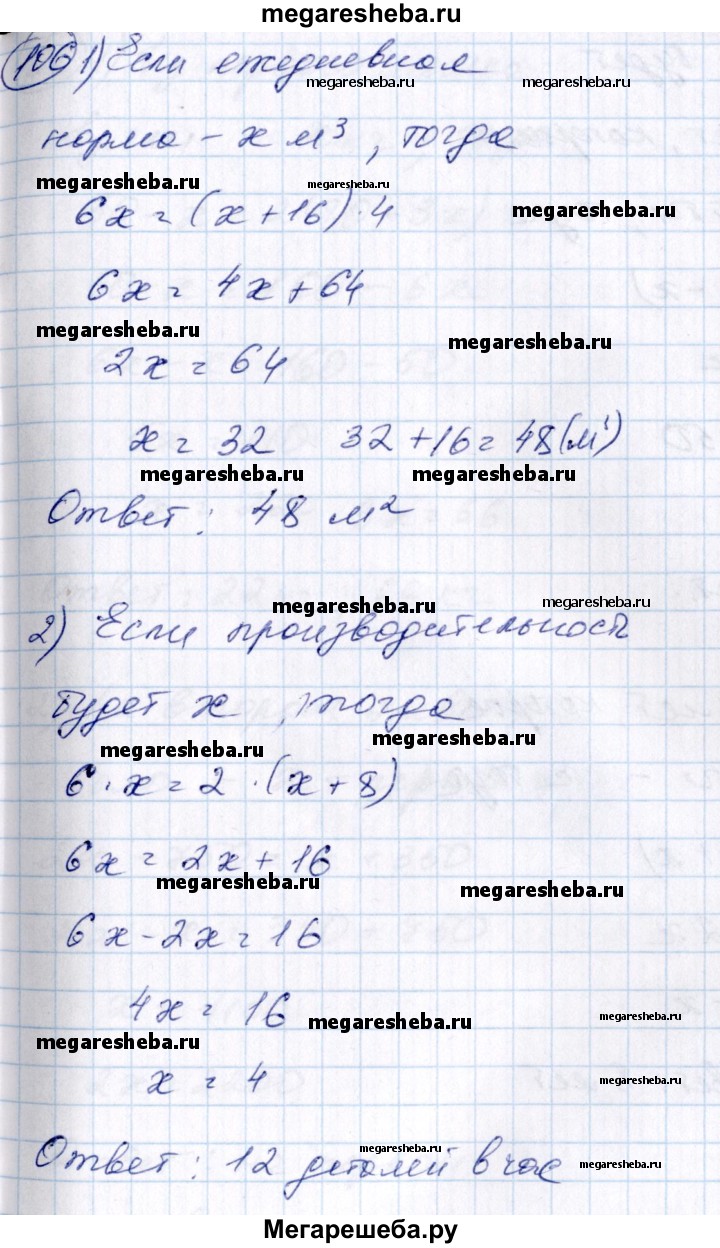 megaresheba.ru
106 1) Если ежедневная
megaresheba.ru megaresheba.ru
норма - x м³, тогда
megaresheba.ru megaresheba.ru
6x = (x + 16) · 4 megaresheba.ru
6x = 4x + 64
megaresheba.ru megaresheba.ru
2x = 64
x = 32 32 + 16 = 48 (м¹)
megaresheba.ru megaresheba.ru
Ответ: 48 м²
megaresheba.ru megaresheba.ru
2) Если производительность
будет x, тогда
megaresheba.ru megaresheba.ru
6 · x = 2 · (x + 8)
6x = 2x + 16
megaresheba.ru megaresheba.ru
6x - 2x = 16
4x = 16 megaresheba.ru megaresheba.ru
megaresheba.ru
x = 4 megaresheba.ru
Ответ: 12 деталей в час
megaresheba.ru megaresheba.ru
Мегарешеба.ру